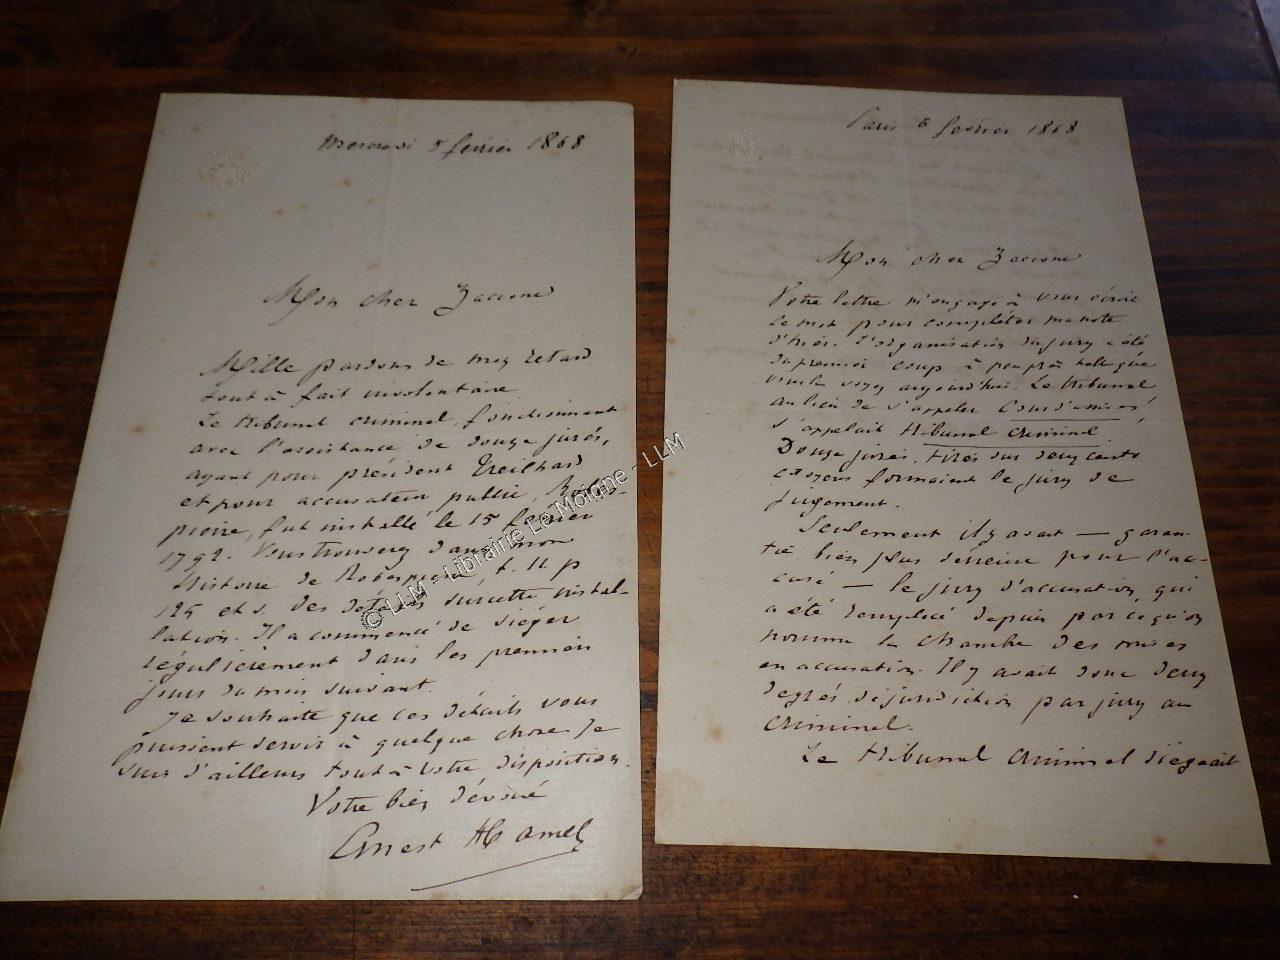 Mercredi 5 février 1868
Mon cher Zaccone
Mille pardons de mon retard
tout à fait involontaire
Le tribunal criminel, fonctionnant
avec l'assistance de douze jurés,
ayant pour président Treilhard
et pour accusateur public, Robes-
pierre, fut installé le 15 février
1792. Vous trouverez dans mon
Histoire de Robespierre, t. II p
125 et s. des détails sur cette instal-
lation. Il a commencé de siéger
régulièrement dans les premiers
jours du mois suivant.
Je souhaite que ces détails vous
puissent servir à quelque chose. Je
suis d'ailleurs tout à votre disposition.
Votre bien dévoué
Ernest Hamel
Paris 6 février 1868
Mon cher Zaccone
Votre lettre m'engage à vous écrire
ce mot pour compléter ma note
d'hier. L'organisation du jury a été
du premier coup à peu près telle que
vous la voyez aujourd'hui. Le tribunal
au lieu de s'appeler Cour d'assises
s'appelait tribunal criminel
Douze jurés, tirés sur deux cents
citoyens formaient le jury de
jugement.
Seulement il y avait — garan-
tie bien plus sérieuse pour l'ac-
cusé — le jury d'accusation, qui
a été remplacé depuis par ce qu'on
nomme la chambre des mises
en accusation. Il y avait donc deux
degrés de juridiction par jury au
criminel.
Le tribunal criminel siégeait
© LLM - Librairie Le Moigne - LLM